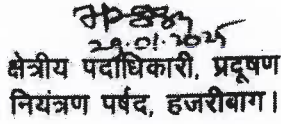 29.01.2025
क्षेत्रीय पदाधिकारी, प्रदूषण
नियंत्रण पर्षद, हजारीबाग।